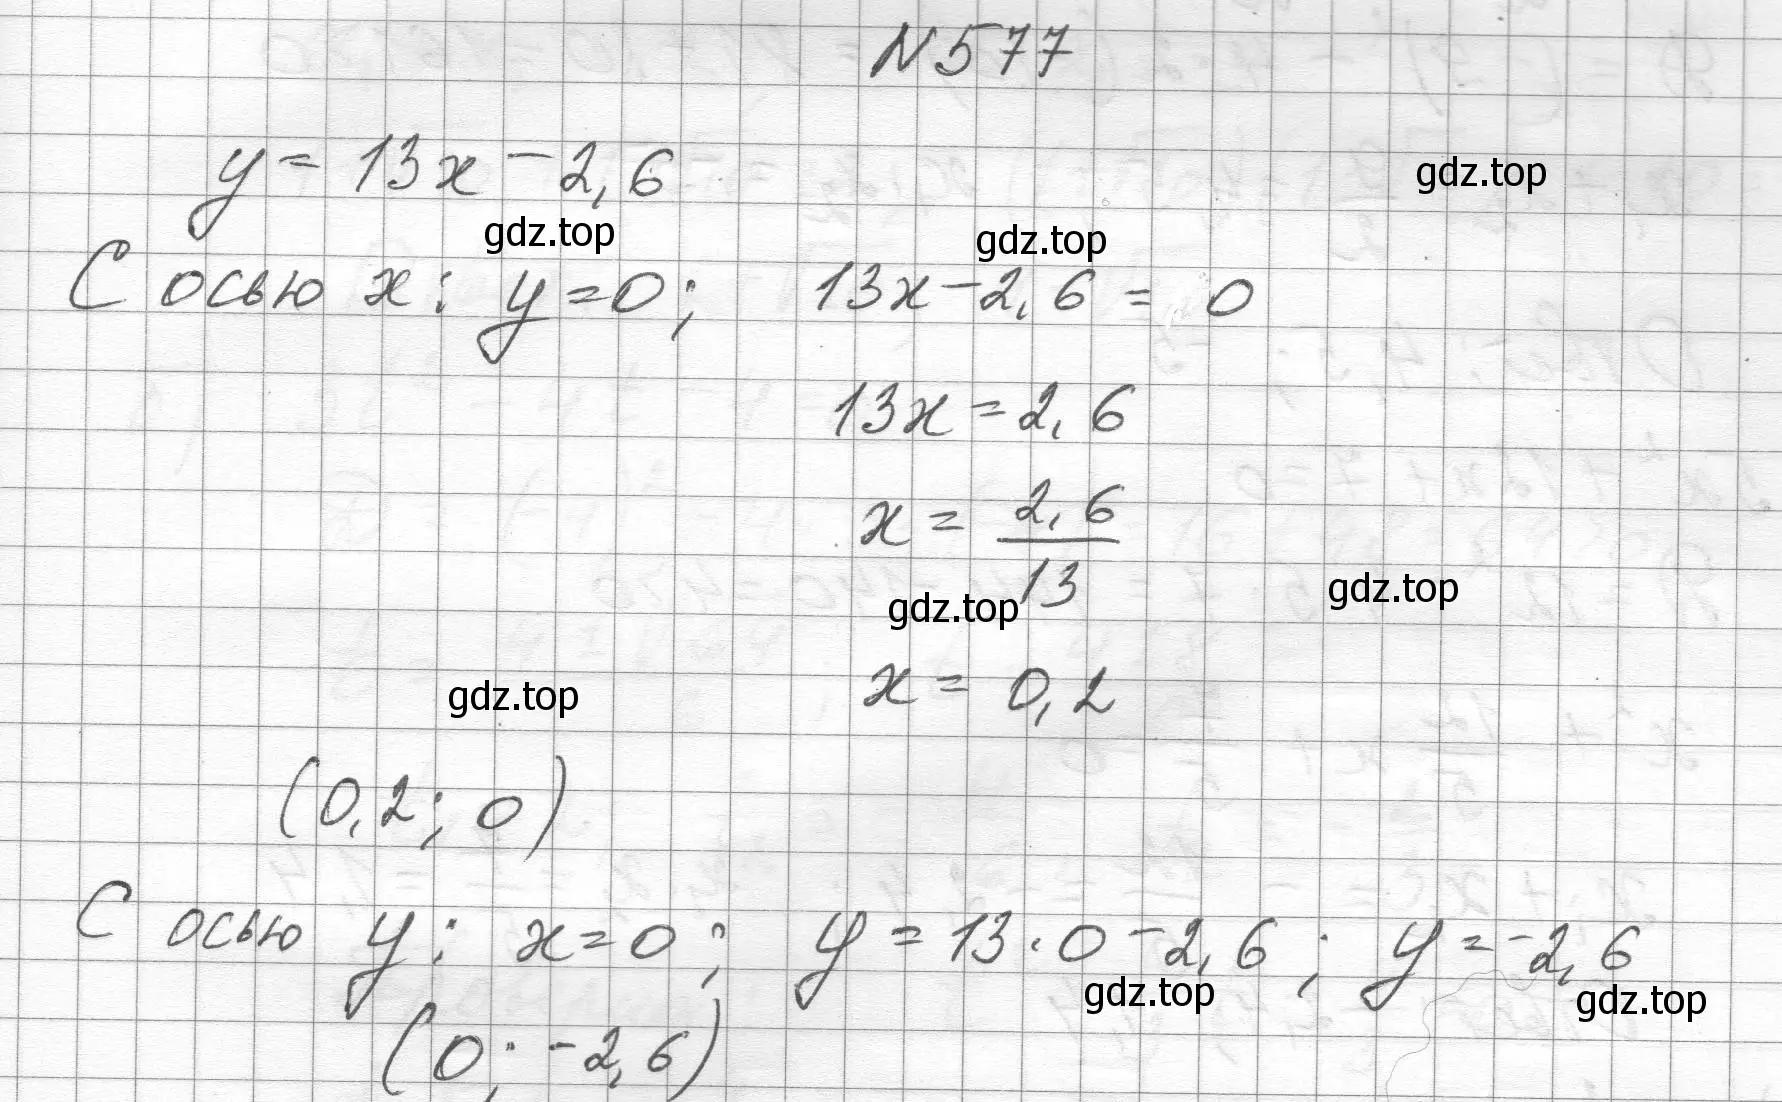 N 577
y = 13x - 2,6
gdz.top
gdz.top gdz.top
С осью x: y = 0; 13x - 2,6 = 0
13x = 2,6
x = 2,6 / 13
gdz.top gdz.top
gdz.top x = 0,2
(0,2; 0)
С осью y: x = 0; y = 13 · 0 - 2,6; y = -2,6
gdz.top gdz.top
(0; -2,6)